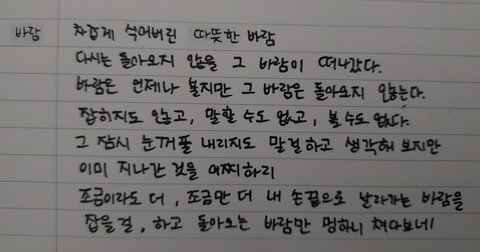 바람
차갑게 식어버린 따뜻한 바람
다시는 돌아오지 않을 그 바람이 떠나갔다.
바람은 언제나 불지만 그 바람은 돌아오지 않는다.
잡히지도 않고, 말할 수도 없고, 볼 수도 없다.
그 잠시 눈꺼풀 내리지도 말걸하고 생각해 보지만
이미 지나간 것을 어찌하리
조금이라도 더, 조금만 더 내 손끝으로 날라가는 바람을
잡을 걸, 하고 돌아오는 바람만 멍하니 쳐다보네!